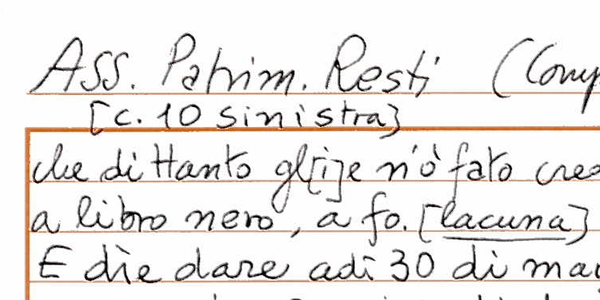 Ass. Patrim. Resti (Comp
[c. 10 sinistra]
che di ttanto gl[i]e n'ò fato cre
a libro nero, a fo. [lacuna]
E die dare adì 30 di ma